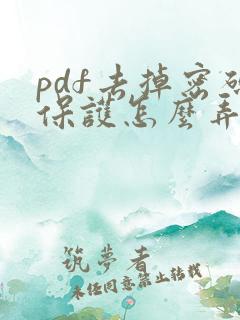 pdf去掉密碼
保護怎麼弄
筑夢者
未經同意禁止轉載